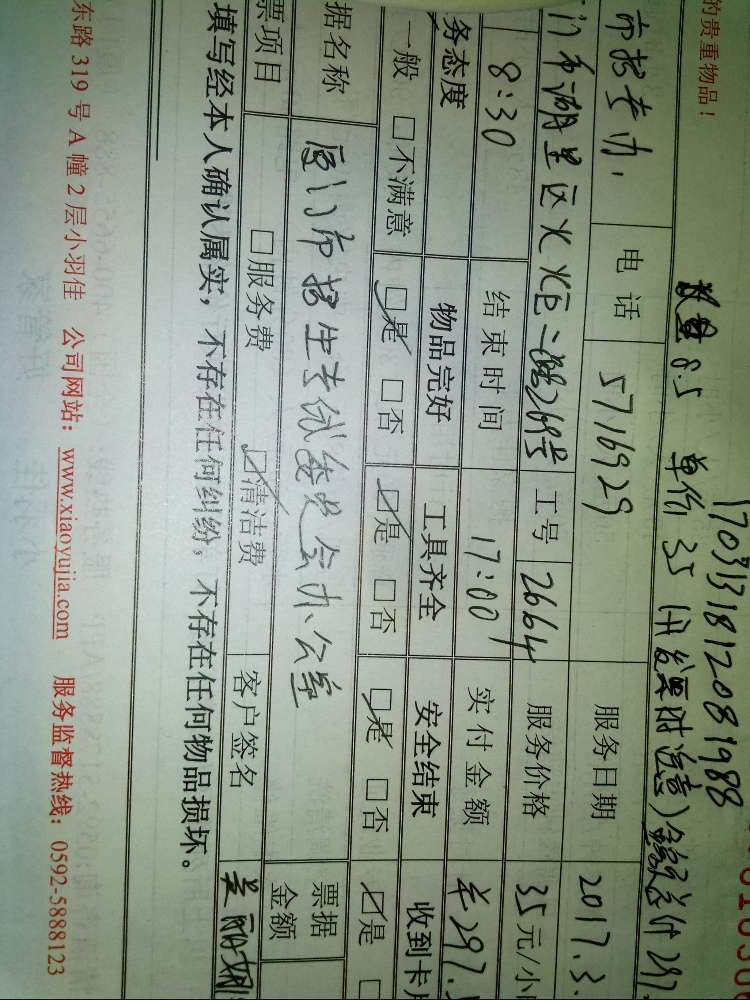 的贵重物品！
1703131812081988
数量 8.5 单价 35 (开发票时注意)
市招考办 电话 5716929 服务日期 2017.3.
门市湖里区火炬二路269号 工号 2664 服务价格 35元/小
8:30 结束时间 17:00 实付金额 ￥297.
务态度 物品完好 工具齐全 安全结束 收到卡
一般 □不满意 ☑是 □否 ☑是 □否 ☑是 □否 ☑是 □
据名称 厦门市招生考试委员会办公室 票据金额
票项目 □服务费 ☑清洁费 客户签名
填写经本人确认属实，不存在任何纠纷，不存在任何物品损坏。
东路319号A幢2层小羽佳 公司网站：www.xiaoyujia.com 服务监督热线：0592-5888123